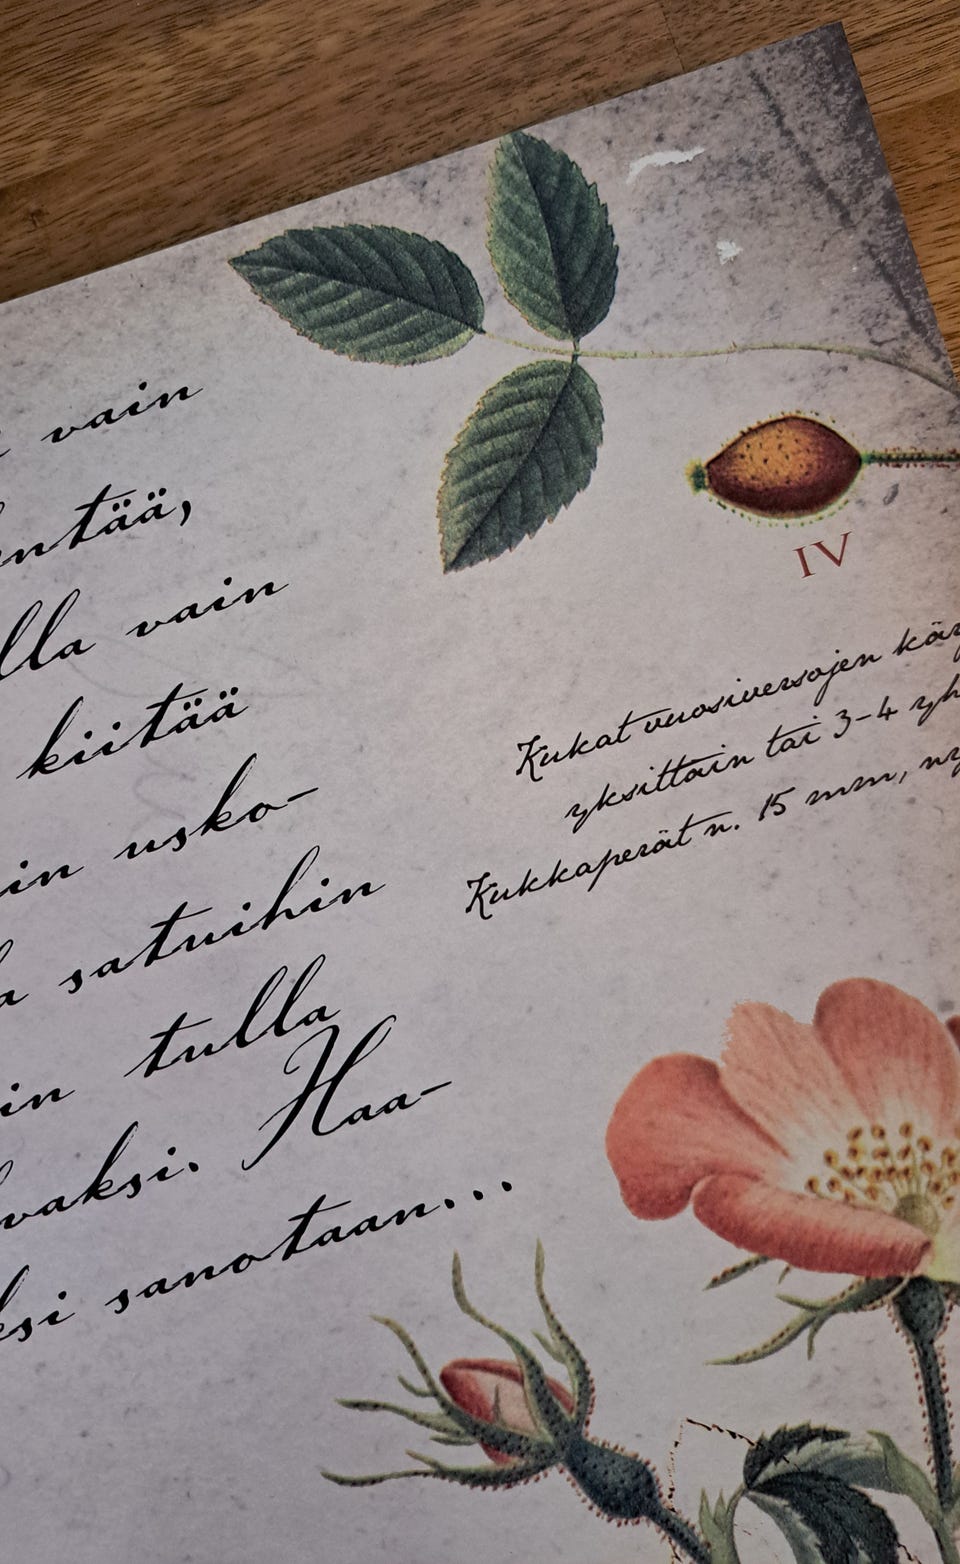 vain
entää,
lla vain
kiitää
in usko-
a satuihin
in tulla
vaksi. Haa-
ksi sanotaan...
IV
Kukat vuosiversojen kär
yksittäin tai 3-4 yh
Kukkaperät n. 15 mm, ny